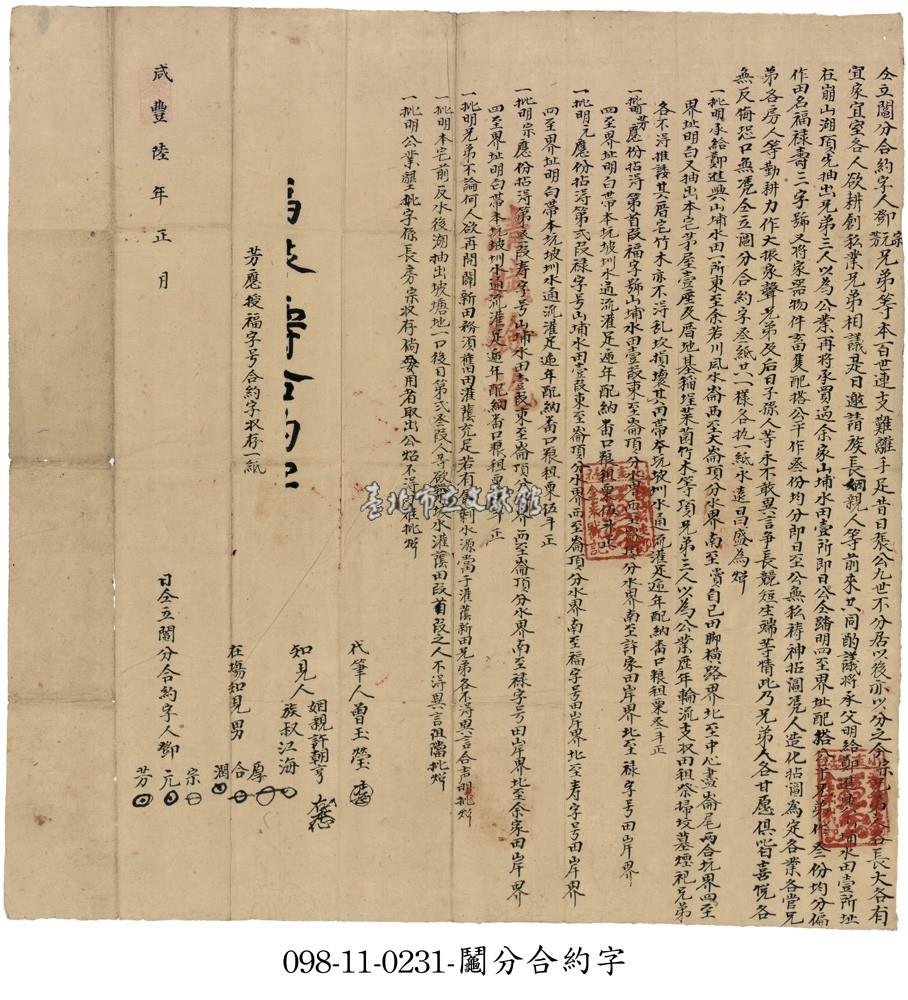 仝立鬮分合約字人鄧宗元芳兄弟等本百世連支難離手足昔日張公九世不分居以後亦以分之今宗兄弟各各長大各有
宜家宜室各人欲耕創私業兄弟相議是日邀請族長姻親人等前來共同酌議將承父明給鄭進興山埔水田壹所址
在崩山湖頂先抽出兄弟三人以為公業再將承買過余家山埔水田壹所即日公仝踏明四至界址配搭公平兄弟作叁份均分編
作田名福祿壽三字號又將家器物件畜隻配搭公平作叁份均分即日至公無私禱神拈鬮憑人造化拈鬮為定各業各管兄
弟各房人等勤耕力作大振家聲兄弟及后日子孫人等永不敢異言爭長競短生端等情此乃兄弟人各甘愿俱皆喜悅各
無反悔恐口無憑仝立鬮分合約字叁紙廿一樣各执一紙永遠昌盛為炤
一批明承給鄭進興山埔水田一所東至余若川風水崙西至大崙頂分水界南至賞自己田脚橫路界北至中心畫崙尾兩合坑界四至
界址明白又抽出本宅茅屋壹座及厝地基稻埕菜園竹木等項兄弟三人以為公業歷年輪流支收田租祭掃坟墓煙祀兄弟
各不得推諉其公厝宅竹木亦不得乱砍損壞其田帶本坑坡圳水通流灌足遞年配納畨口粮租粟叁斗正
一批明芳應份拈得第首段福字號山埔水田壹段東至崙頂分水界西至崙頂分水界南至許家田岸界北至祿字号田岸界
四至界址明白帶本坑坡圳水通流灌足遞年配納畨口粮租粟伍斗正
一批明元應份拈得第弍段祿字号山埔水田壹段東至崙頂分水界西至崙頂分水界南至福字号田岸界北至寿字号田岸界
四至界址明白帶本坑坡圳水通流灌足遞年配納畨口粮租粟伍斗正
一批明宗應份拈得第叁段寿字号山埔水田壹段東至崙頂分水界西至崙頂分水界南至祿字号田岸界北至余家田岸界
四至界址明白帶本坑坡圳水通流灌足遞年配納畨口粮租粟斗正
一批明兄弟不論何人欲再開闢新田務須舊田灌蔭充足若有剩水源當于灌蔭新田兄弟各不得異言合声明批炤
一批明本宅前反水後湖抽出坡塘地一口後日第弍叁段人等欲水灌蔭田段首段之人不得異言阻擋批炤
一批明公業墾批字係長房宗收存倘要用者取出公炤不得推批炤
代筆人曾玉瑩
姻親許朝亨
知見人
族叔江海
在場知見男
厚
合
潤
芳應授福字号合約字收存一紙
日仝立鬮分合約字人鄧
宗
元
芳
咸豐陸年正月
臺北市立文獻館
098-11-0231-鬮分合約字